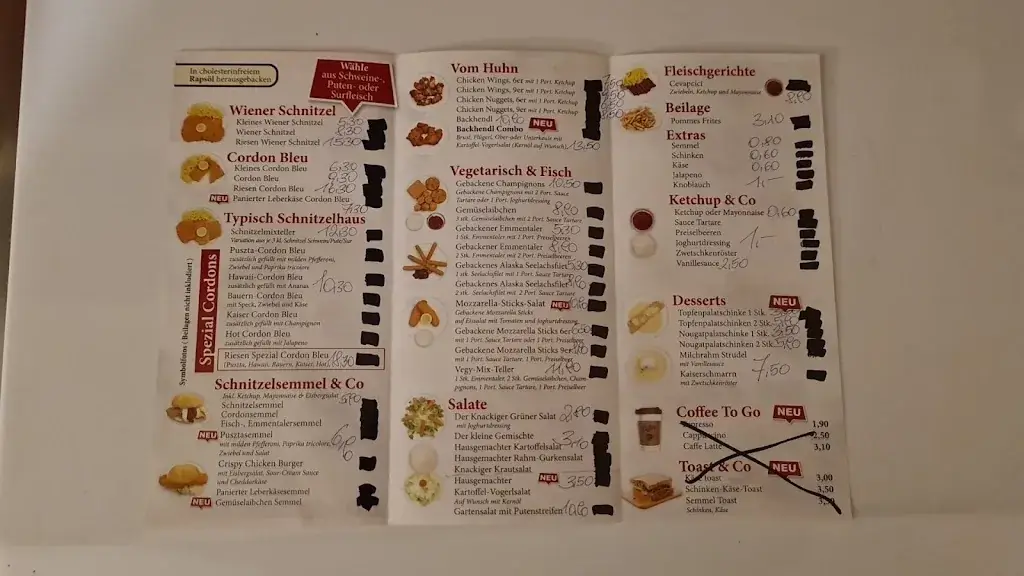 In cholesterinfreiem
Rapsöl herausgebacken
Wähle
aus Schweine-,
Puten- oder
Surfleisch
Wiener Schnitzel
Kleines Wiener Schnitzel 5,30
Wiener Schnitzel 8,30
Riesen Wiener Schnitzel 15,30
Cordon Bleu
Kleines Cordon Bleu 6,30
Cordon Bleu 9,30
Riesen Cordon Bleu 16,30
NEU Panierter Leberkäse Cordon Bleu
7,30
Typisch Schnitzelhaus
Schnitzelmixteller 12,30
Variation aus je 3 kl. Schnitzel Schwein/Pute/Sur
Symbolfotos ( Beilagen nicht inkludiert )
Spezial Cordons
Puszta-Cordon Bleu
zusätzlich gefüllt mit milden Pfefferoni,
Zwiebel und Paprika tricolore
Hawaii-Cordon Bleu
zusätzlich gefüllt mit Ananas 10,30
Bauern-Cordon Bleu
mit Speck, Zwiebel und Käse
Kaiser Cordon Bleu
zusätzlich gefüllt mit Champignon
Hot Cordon Bleu
zusätzlich gefüllt mit Jalapeno
Riesen Spezial Cordon Bleu 18,30
(Puszta, Hawaii, Bauern, Kaiser, Hot)
Schnitzelsemmel & Co
Inkl. Ketchup, Mayonnaise & Eisbergsalat
Schnitzelsemmel
Cordonsemmel
Fisch-, Emmentalersemmel
NEU Pusztasemmel
mit milden Pfefferoni, Paprika tricolore,
Zwiebel und Salat
Crispy Chicken Burger
mit Eisbergsalat, Sour-Cream Sauce
und Cheddarkäse
Panierter Leberkäsesemmel
NEU Gemüselaibchen Semmel
Vom Huhn
Chicken Wings, 6er mit 1 Port. Ketchup
Chicken Wings, 9er mit 1 Port. Ketchup
Chicken Nuggets, 6er mit 1 Port. Ketchup
Chicken Nuggets, 9er mit 1 Port. Ketchup
Backhendl 10,80
Backhendl Combo NEU
Brust, Flügerl, Ober-oder Unterkeule mit
Kartoffel-Vogerlsalat (Kernöl auf Wunsch) 13,50
Vegetarisch & Fisch
Gebackene Champignons 10,50
Gebackene Champignons mit 1 Port. Sauce
Tartare oder 1 Port. Joghurtdressing
Gemüselaibchen 8,80
3 stk. Gemüselaibchen mit 2 Port. Sauce Tartare
Gebackener Emmentaler 5,30
1 Stk. Emmentaler mit 1 Port. Preiselbeeren
Gebackener Emmentaler
2 Stk. Emmentaler mit 2 Port. Preiselbeeren
Gebackenes Alaska Seelachsfilet 5,30
1 stk. Seelachsfilet mit 1 Port. Sauce Tartare
Gebackenes Alaska Seelachsfilet
2 stk. Seelachsfilet mit 2 Port. Sauce Tartare
Mozzarella-Sticks-Salat NEU
Gebackene Mozzarella Sticks
auf Eissalat mit Tomaten und Joghurtdressing
Gebackene Mozzarella Sticks 6er
mit 1 Port. Sauce Tartare oder 1 Port. Preiselbeer
Gebackene Mozzarella Sticks 9er
mit 1 Port. Sauce Tartare, 1 Port. Preiselbeer
Vegy-Mix-Teller
1 Stk. Emmentaler, 2 Stk. Gemüselaibchen, Cham-
pignons, 1 Port. Sauce Tartare, 1 Port. Preiselbeer
Salate
Der Knackiger Grüner Salat 2,80
mit Joghurtdressing
Der kleine Gemischte
Hausgemachter Kartoffelsalat
Hausgemachter Rahm-Gurkensalat
Knackiger Krautsalat
Hausgemachter NEU 3,50
Kartoffel-Vogerlsalat
Auf Wunsch mit Kernöl
Gartensalat mit Putenstreifen
Fleischgerichte
Cevapcici
Zwiebeln, Ketchup und Mayonnaise
Beilage
Pommes Frites 3,10
Extras
Semmel 0,80
Schinken 0,60
Käse 0,60
Jalapeno
Knoblauch 1,-
Ketchup & Co
Ketchup oder Mayonnaise 0,60
Sauce Tartare
Preiselbeeren
Joghurtdressing 1,-
Zwetschkenröster
Vanillesauce 2,50
Desserts NEU
Topfenpalatschinke 1 Stk.
Topfenpalatschinken 2 Stk.
Nougatpalatschinke 1 Stk.
Nougatpalatschinken 2 Stk.
Milchrahm Strudel
mit Vanillesauce 7,50
Kaiserschmarrn
mit Zwetschkenröster
Coffee To Go NEU
Espresso 1,90
Cappuccino 2,50
Caffe Latte 3,10
Toast & Co NEU
Käse toast 3,00
Schinken-Käse-Toast 3,50
Semmel Toast
Schinken, Käse